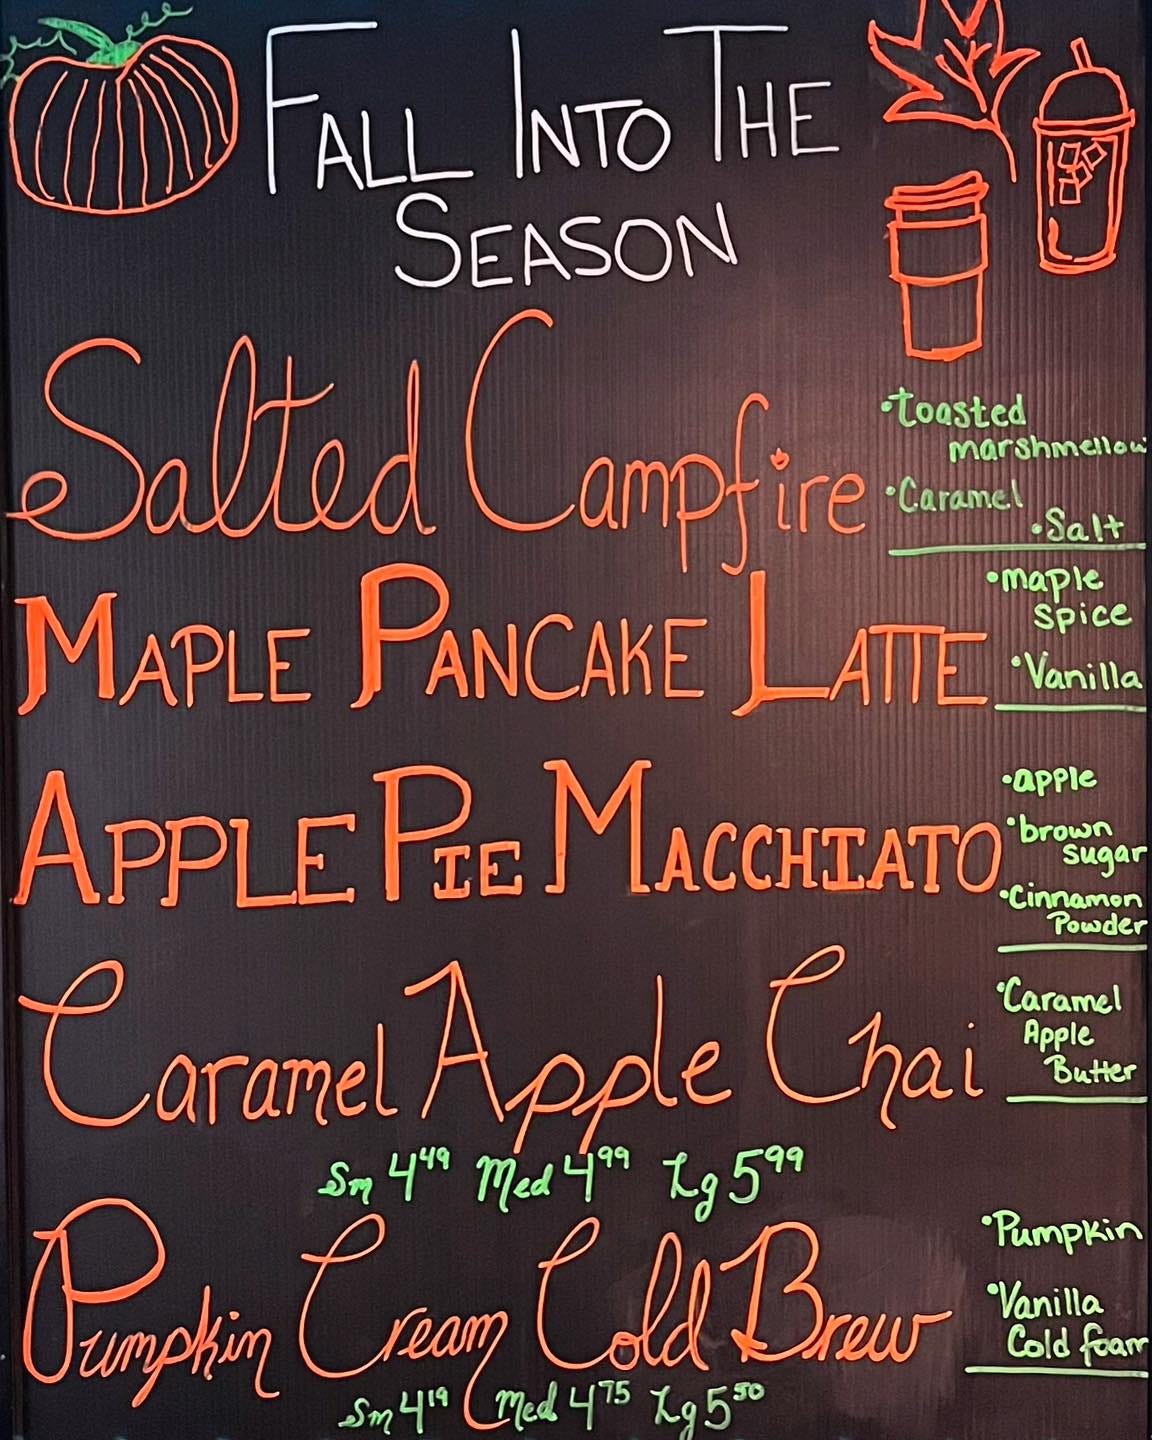 FALL INTO THE
SEASON
Salted Campfire
•toasted
marshmellow
•Caramel
•Salt
MAPLE PANCAKE LATTE
•maple
spice
•Vanilla
APPLE PIE MACCHIATO
•apple
•brown
sugar
•Cinnamon
Powder
Caramel Apple Chai
•Caramel
Apple
Butter
Sm 4.49 Med 4.99 Lg 5.99
Pumpkin Cream Cold Brew
•Pumpkin
•Vanilla
Cold foam
Sm 4.19 Med 4.75 Lg 5.50